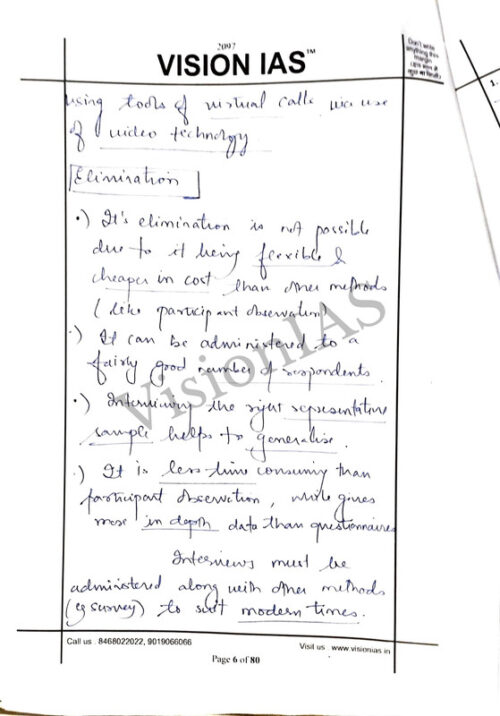 2097
VISION IAS™
Don't write anything this margin
1.
using tools of virtual calls via use
of video technology
Elimination
•) It's elimination is not possible
due to it being flexible &
cheaper in cost than other methods
(like participant observation)
•) It can be administered to a
fairly good number of respondents.
•) Interviewing the right representative
sample helps to generalise.
•) It is less time consuming than
participant observation, while gives
more in depth data than questionnaires
Interviews must be
administered along with other methods
(eg survey) to suit modern times.
VisionIAS
Call us : 8468022022, 9019066066
Visit us : www.visionias.in
Page 6 of 80